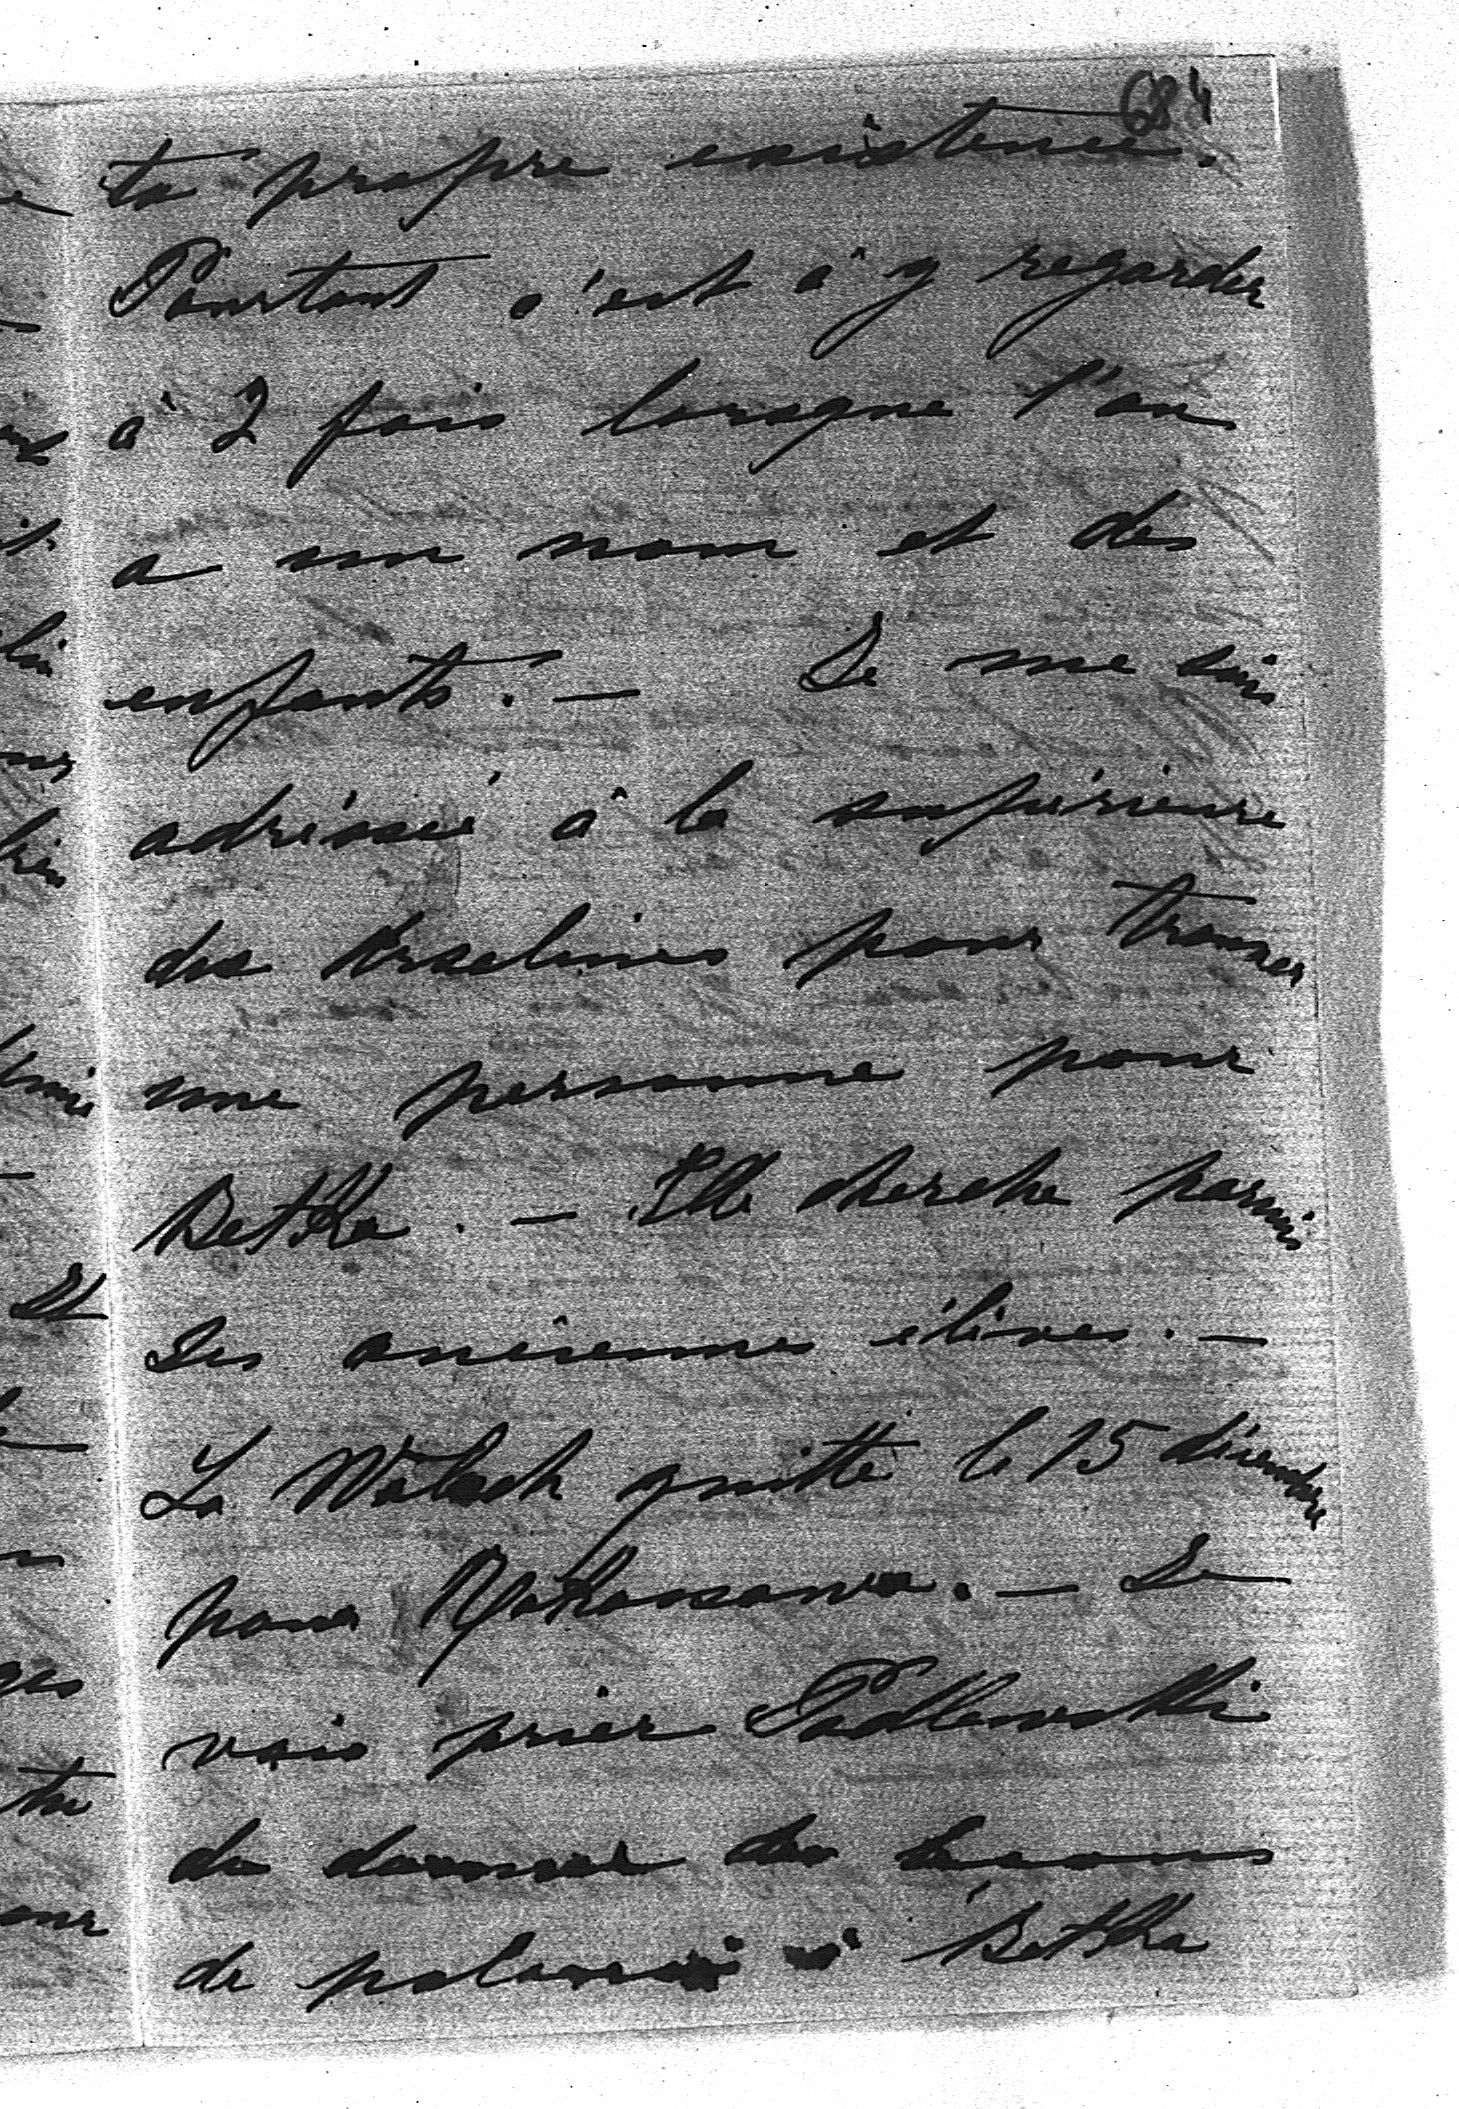 684
ta propre existence.
Pourtant c'est à y regarder
à 2 fois lorsque l'on
a un nom et des
enfants. — Je me suis
adréssée à la supérieure
des Urselines pour trouver
une personne pour
Betka. — Elle cherche parmis
ses anciennes élèves. —
La Walach quitte le 15 décembre
pour Rykoszowa. — Je
vais prier Padlewski
de donner des leçons
de polonais à Betka